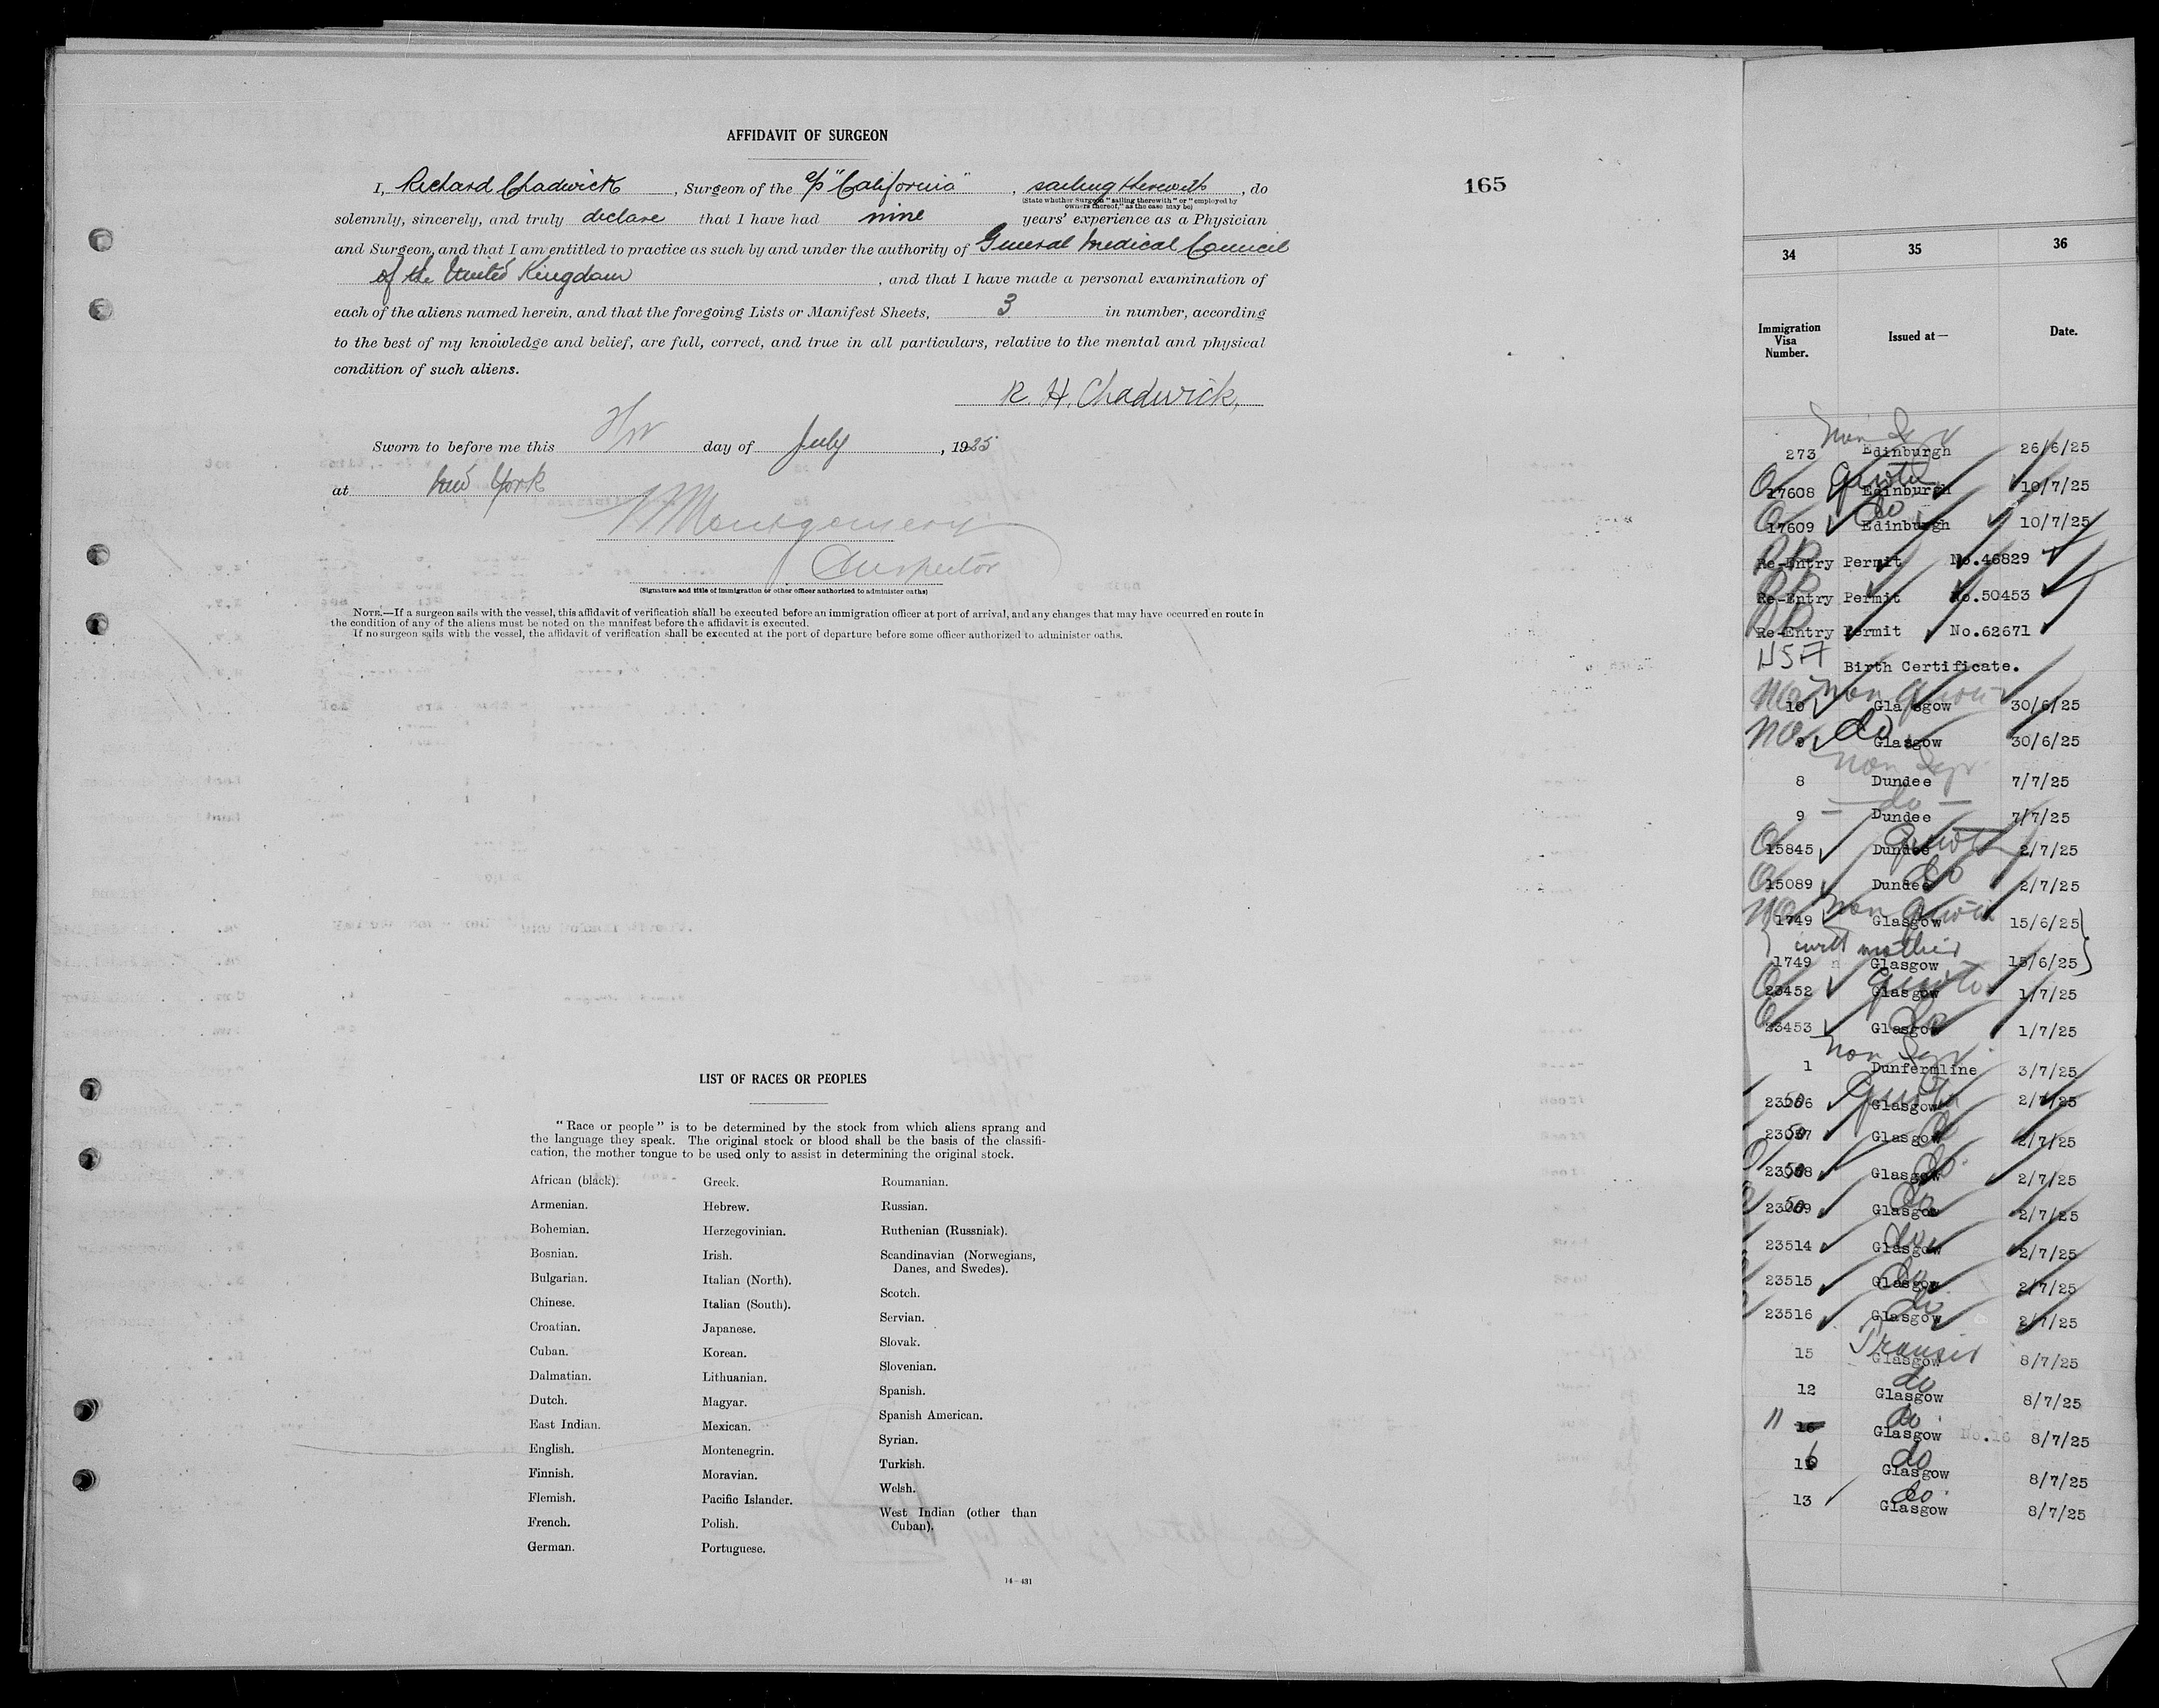 AFFIDAVIT OF SURGEON
I, Richard Chadwick, Surgeon of the S/S "California", sailing therewith, do
(State whether Surgeon "sailing therewith" or "employed by
owners thereof," as the case may be)
solemnly, sincerely, and truly declare that I have had nine years' experience as a Physician
and Surgeon, and that I am entitled to practice as such by and under the authority of General Medical Council
of the United Kingdom, and that I have made a personal examination of
each of the aliens named herein, and that the foregoing Lists or Manifest Sheets, 3 in number, according
to the best of my knowledge and belief, are full, correct, and true in all particulars, relative to the mental and physical
condition of such aliens.
R. H. Chadwick,
Sworn to before me this day of July, 1925
at New York
Montgomery
Inspector
(Signature and title of immigration or other officer authorized to administer oaths)
NOTE.—If a surgeon sails with the vessel, this affidavit of verification shall be executed before an immigration officer at port of arrival, and any changes that may have occurred en route in
the condition of any of the aliens must be noted on the manifest before the affidavit is executed.
If no surgeon sails with the vessel, the affidavit of verification shall be executed at the port of departure before some officer authorized to administer oaths.
LIST OF RACES OR PEOPLES
"Race or people" is to be determined by the stock from which aliens sprang and
the language they speak. The original stock or blood shall be the basis of the classifi-
cation, the mother tongue to be used only to assist in determining the original stock.
African (black).
Armenian.
Bohemian.
Bosnian.
Bulgarian.
Chinese.
Croatian.
Cuban.
Dalmatian.
Dutch.
East Indian.
English.
Finnish.
Flemish.
French.
German.
Greek.
Hebrew.
Herzegovinian.
Irish.
Italian (North).
Italian (South).
Japanese.
Korean.
Lithuanian.
Magyar.
Mexican.
Montenegrin.
Moravian.
Pacific Islander.
Polish.
Portuguese.
Roumanian.
Russian.
Ruthenian (Russniak).
Scandinavian (Norwegians,
Danes, and Swedes).
Scotch.
Servian.
Slovak.
Slovenian.
Spanish.
Spanish American.
Syrian.
Turkish.
Welsh.
West Indian (other than
Cuban).
14—431
165
34 35 36
Immigration
Visa
Number.
Issued at—
Date.
273 Edinburgh 26/6/25
Quota
17608 Edinburgh 10/7/25
do
17609 Edinburgh 10/7/25
Re-Entry Permit No.46829
Re-Entry Permit No.50453
Re-Entry Permit No.62671
USA Birth Certificate.
non quota
10 Glasgow 30/6/25
do
9 Glasgow 30/6/25
8 Dundee 7/7/25
do
9 Dundee 7/7/25
Quota
15845 Dundee 2/7/25
do
15089 Dundee 2/7/25
non quota
1749 Glasgow 15/6/25
with mother
1749 Glasgow 15/6/25
Quota
23452 Glasgow 1/7/25
do
23453 Glasgow 1/7/25
1 Dunfermline 3/7/25
Quota
Glasgow 2/7/25
do
Glasgow 2/7/25
do
Glasgow 2/7/25
do
Glasgow 2/7/25
do
23514 Glasgow 2/7/25
do
23515 Glasgow 2/7/25
do
23516 Glasgow 2/7/25
Transit
15 Glasgow 8/7/25
do
12 Glasgow 8/7/25
do
11 Glasgow No.16 8/7/25
do
Glasgow 8/7/25
do
13 Glasgow 8/7/25